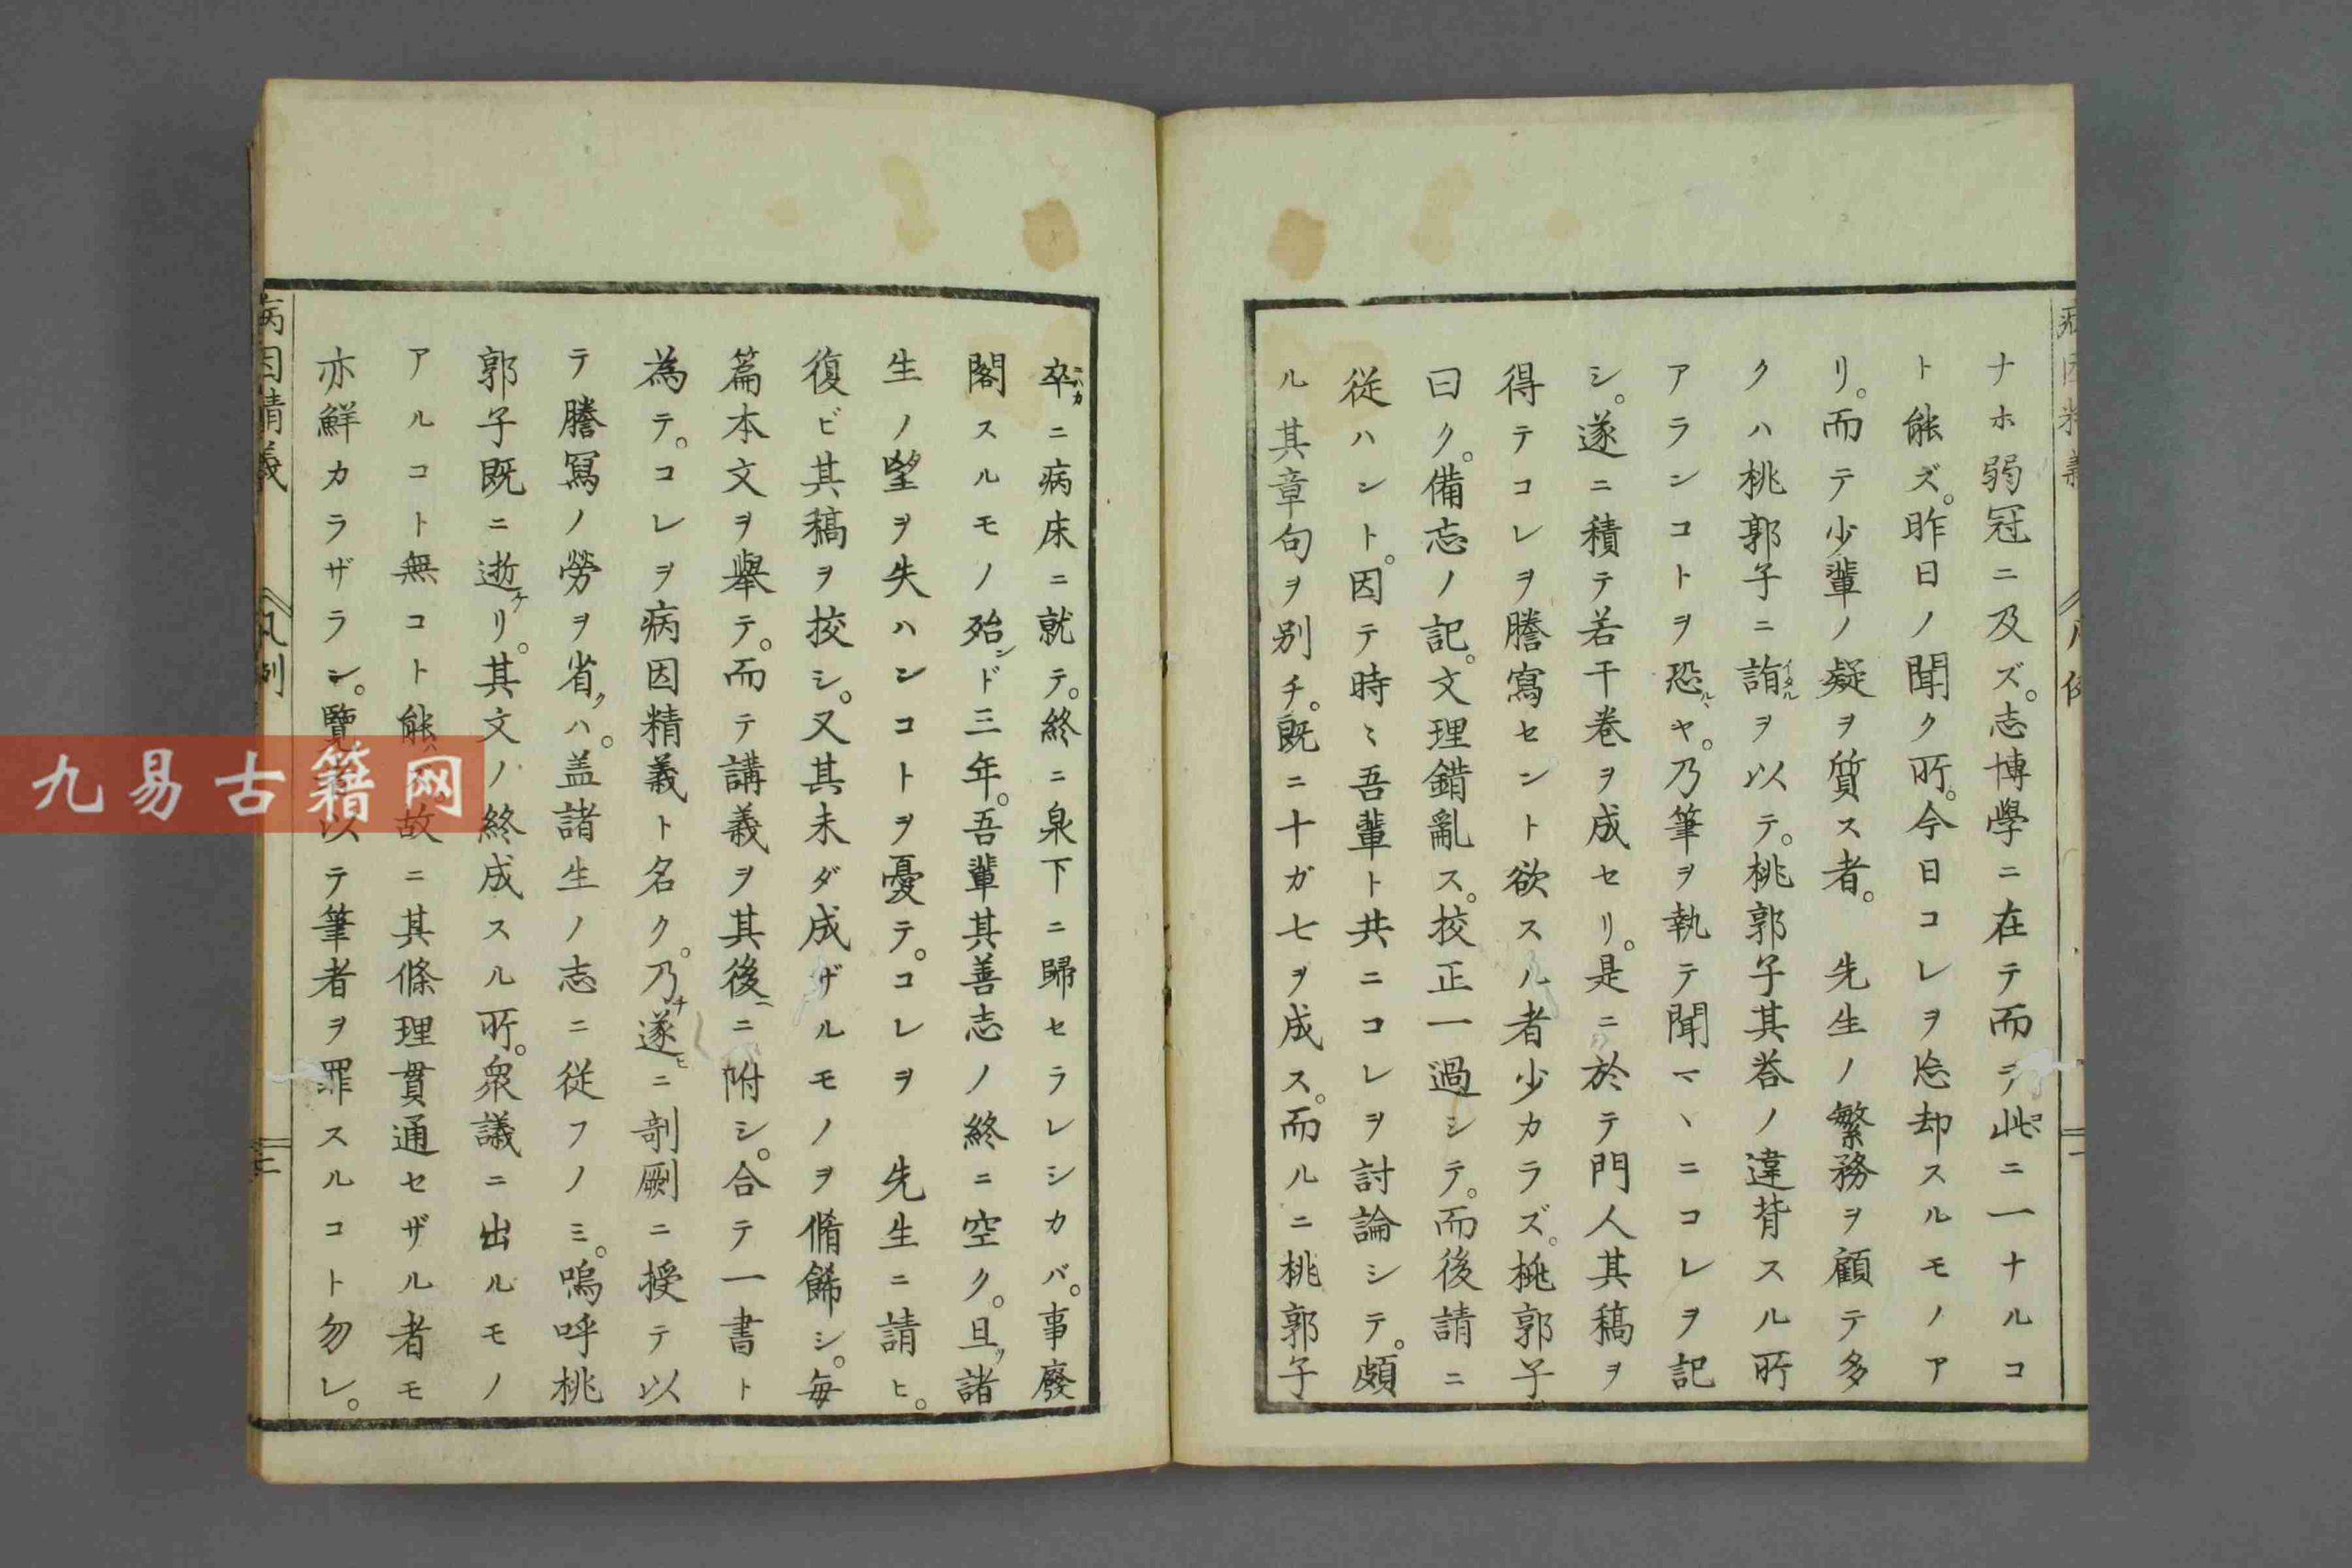 ナホ弱冠ニ及ズ。志博學ニ在テ而テ此ニ一ナルコ
ト能ズ。昨日ノ聞ク所。今日コレヲ忘却スルモノア
リ。而テ少輩ノ疑ヲ質ス者。 先生ノ繁務ヲ顧テ多
クハ桃郭子ニ詣ヲ以テ。桃郭子其答ノ違背スル所
アランコトヲ恐ルヽヤ。乃筆ヲ執テ聞マヽニコレヲ記
シ。遂ニ積テ若干巻ヲ成セリ。是ニ於テ門人其稿ヲ
得テコレヲ謄寫セント欲スル者少カラズ。桃郭子
曰ク。備忘ノ記。文理錯亂ス。校正一過シテ。而後請ニ
従ハント。因テ時〻吾輩ト共ニコレヲ討論シテ。頗
ル其章句ヲ別チ。既ニ十ガ七ヲ成ス。而ルニ桃郭子
卒ニ病床ニ就テ。終ニ泉下ニ歸セラレシカバ。事廢
閣スルモノ殆ンド三年。吾輩其善志ノ終ニ空ク。且ツ諸
生ノ望ヲ失ハンコトヲ憂テ。コレヲ 先生ニ請ヒ。
復ビ其稿ヲ挍シ。又其未ダ成ザルモノヲ脩餙シ。毎
篇本文ヲ舉テ。而テ講義ヲ其後ニ附シ。合テ一書ト
為テ。コレヲ病因精義ト名ク。乃チ遂ニ剞劂ニ授テ以
テ謄冩ノ勞ヲ省クハ。盖諸生ノ志ニ従フノミ。嗚呼桃
郭子既ニ逝ケリ。其文ノ終成スル所。衆議ニ出ルモノ
アルコト無コト能ハ 故ニ其條理貫通セザル者モ
亦鮮カラザラン。覽 以テ筆者ヲ罪スルコト勿レ。
病因精義 凡例
九易古籍网